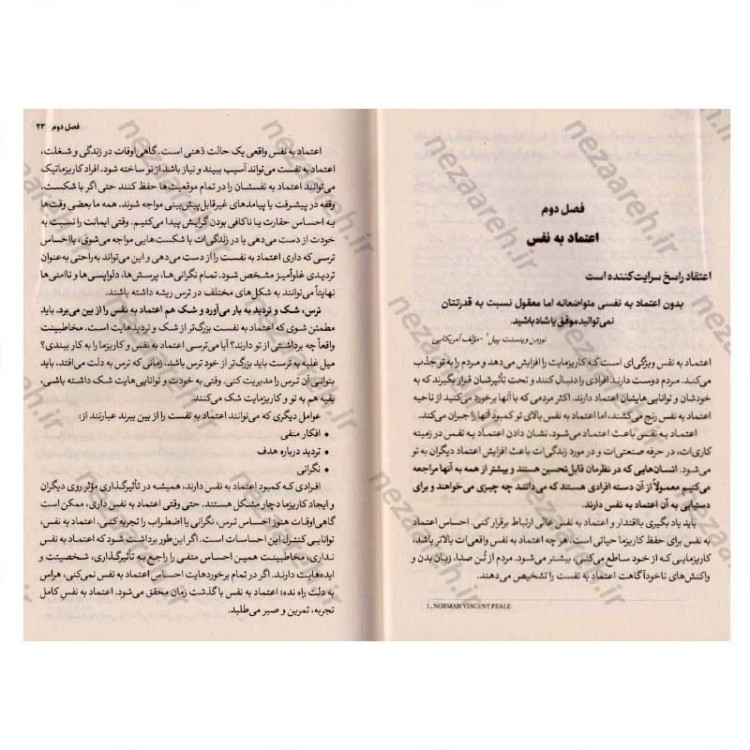 فصل دوم
اعتماد به نفس
اعتقاد راسخ سرایت‌کننده است
بدون اعتماد به نفسی متواضعانه اما معقول نسبت به قدرتتان
نمی‌توانید موفق یا شاد باشید.
نورمن وینسنت پیل۱ - مؤلف آمریکایی
اعتماد به نفس ویژگی‌ای است که کاریزمایت را افزایش می‌دهد و مردم را به تو جذب
می‌کند. مردم دوست دارند افرادی را دنبال کنند و تحت تأثیرشان قرار بگیرند که به
خودشان و توانایی‌هایشان اعتماد دارند. اکثر مردمی که با آنها برخورد می‌کنید از ناحیه
اعتماد به نفس رنج می‌کشند، اما اعتماد به نفس بالای تو کمبود آنها را جبران می‌کند.
اعتماد به نفس باعث اعتماد می‌شود. نشان دادن اعتماد به نفس در زمینه
کاری‌ات، در حرفه صنعتی‌ات و در مورد زندگی‌ات باعث افزایش اعتماد دیگران به تو
می‌شود. انسان‌هایی که در نظرمان قابل‌تحسین هستند و بیشتر از همه به آنها مراجعه
می‌کنیم معمولاً از آن دسته افرادی هستند که می‌دانند چه چیزی می‌خواهند و برای
دستیابی به آن اعتماد به نفس دارند.
باید یاد بگیری با اقتدار و اعتماد به نفس عالی ارتباط برقرار کنی. احساس اعتماد
به نفس برای حفظ کاریزما حیاتی است، هر چه اعتماد به نفس واقعی‌ات بالاتر باشد،
کاریزمایی که از خود ساطع می‌کنی، بیشتر می‌شود. مردم از تُن صدا، زبان بدن و
واکنش‌های ناخودآگاهت اعتماد به نفست را تشخیص می‌دهند.
1. NORMAN VINCENT PEALE
فصل دوم ۲۳
اعتماد به نفس واقعی یک حالت ذهنی است. گاهی اوقات در زندگی و شغلت،
اعتماد به نفست می‌تواند آسیب ببیند و نیاز باشد از نو ساخته شود. افراد کاریزماتیک
می‌توانند اعتماد به نفسشان را در تمام موقعیت‌ها حفظ کنند حتی اگر با شکست،
وقفه در پیشرفت یا پیامدهای غیرقابل‌پیش‌بینی مواجه شوند. همه ما بعضی وقت‌ها
به احساس حقارت یا ناکافی بودن گرایش پیدا می‌کنیم. وقتی ایمانت را نسبت به
خودت از دست می‌دهی یا در زندگی‌ات با شکست‌هایی مواجه می‌شوی، با احساس
ترسی که داری اعتماد به نفست را از دست می‌دهی و این می‌تواند به‌راحتی به‌عنوان
تردیدی غلوآمیز مشخص شود. تمام نگرانی‌ها، پرسش‌ها، دلواپسی‌ها و ناامنی‌ها
نهایتاً می‌توانند به شکل‌های مختلف در ترس ریشه داشته باشند.
ترس، شک و تردید به بار می‌آورد و شک هم اعتماد به نفس را از بین می‌برد. باید
مطمئن شوی که اعتماد به نفست بزرگ‌تر از شک و تردیدهایت است. مخاطبینت
واقعاً چه برداشتی از تو دارند؟ آیا می‌ترسی اعتماد به نفس و کاریزمایت را به کار ببندی؟
میل غلبه به ترست باید بزرگ‌تر از خود ترس باشد. زمانی که ترس به دلت می‌افتد، باید
بتوانی آن ترس را مدیریت کنی. وقتی به خودت و توانایی‌هایت شک داشته باشی،
بقیه هم به تو و کاریزمایت شک می‌کنند.
عوامل دیگری که می‌توانند اعتماد به نفست را از بین ببرند عبارتند از:
• افکار منفی
• تردید درباره هدف
• نگرانی
افرادی که کمبود اعتماد به نفس دارند، همیشه در تأثیرگذاری مؤثر روی دیگران
و ایجاد کاریزما دچار مشکل هستند. حتی وقتی اعتماد به نفس داری، ممکن است
گاهی اوقات هنوز احساس ترس، نگرانی یا اضطراب را تجربه کنی. اعتماد به نفس،
توانایی کنترل این احساسات است. اگر این‌طور برداشت شود که اعتماد به نفس
نداری، مخاطبینت همین احساس منفی را راجع به تأثیرگذاری، شخصیت و
ایده‌هایت دارند. اگر در تمام برخوردهایت احساس اعتماد به نفس نمی‌کنی، هراس
به دلت راه نده؛ اعتماد به نفس با گذشت زمان محقق می‌شود. اعتماد به نفسِ کامل
تجربه، تمرین و صبر می‌طلبد.
nezaareh.ir